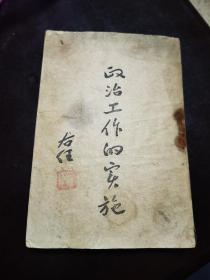 政治工作的实施
右任